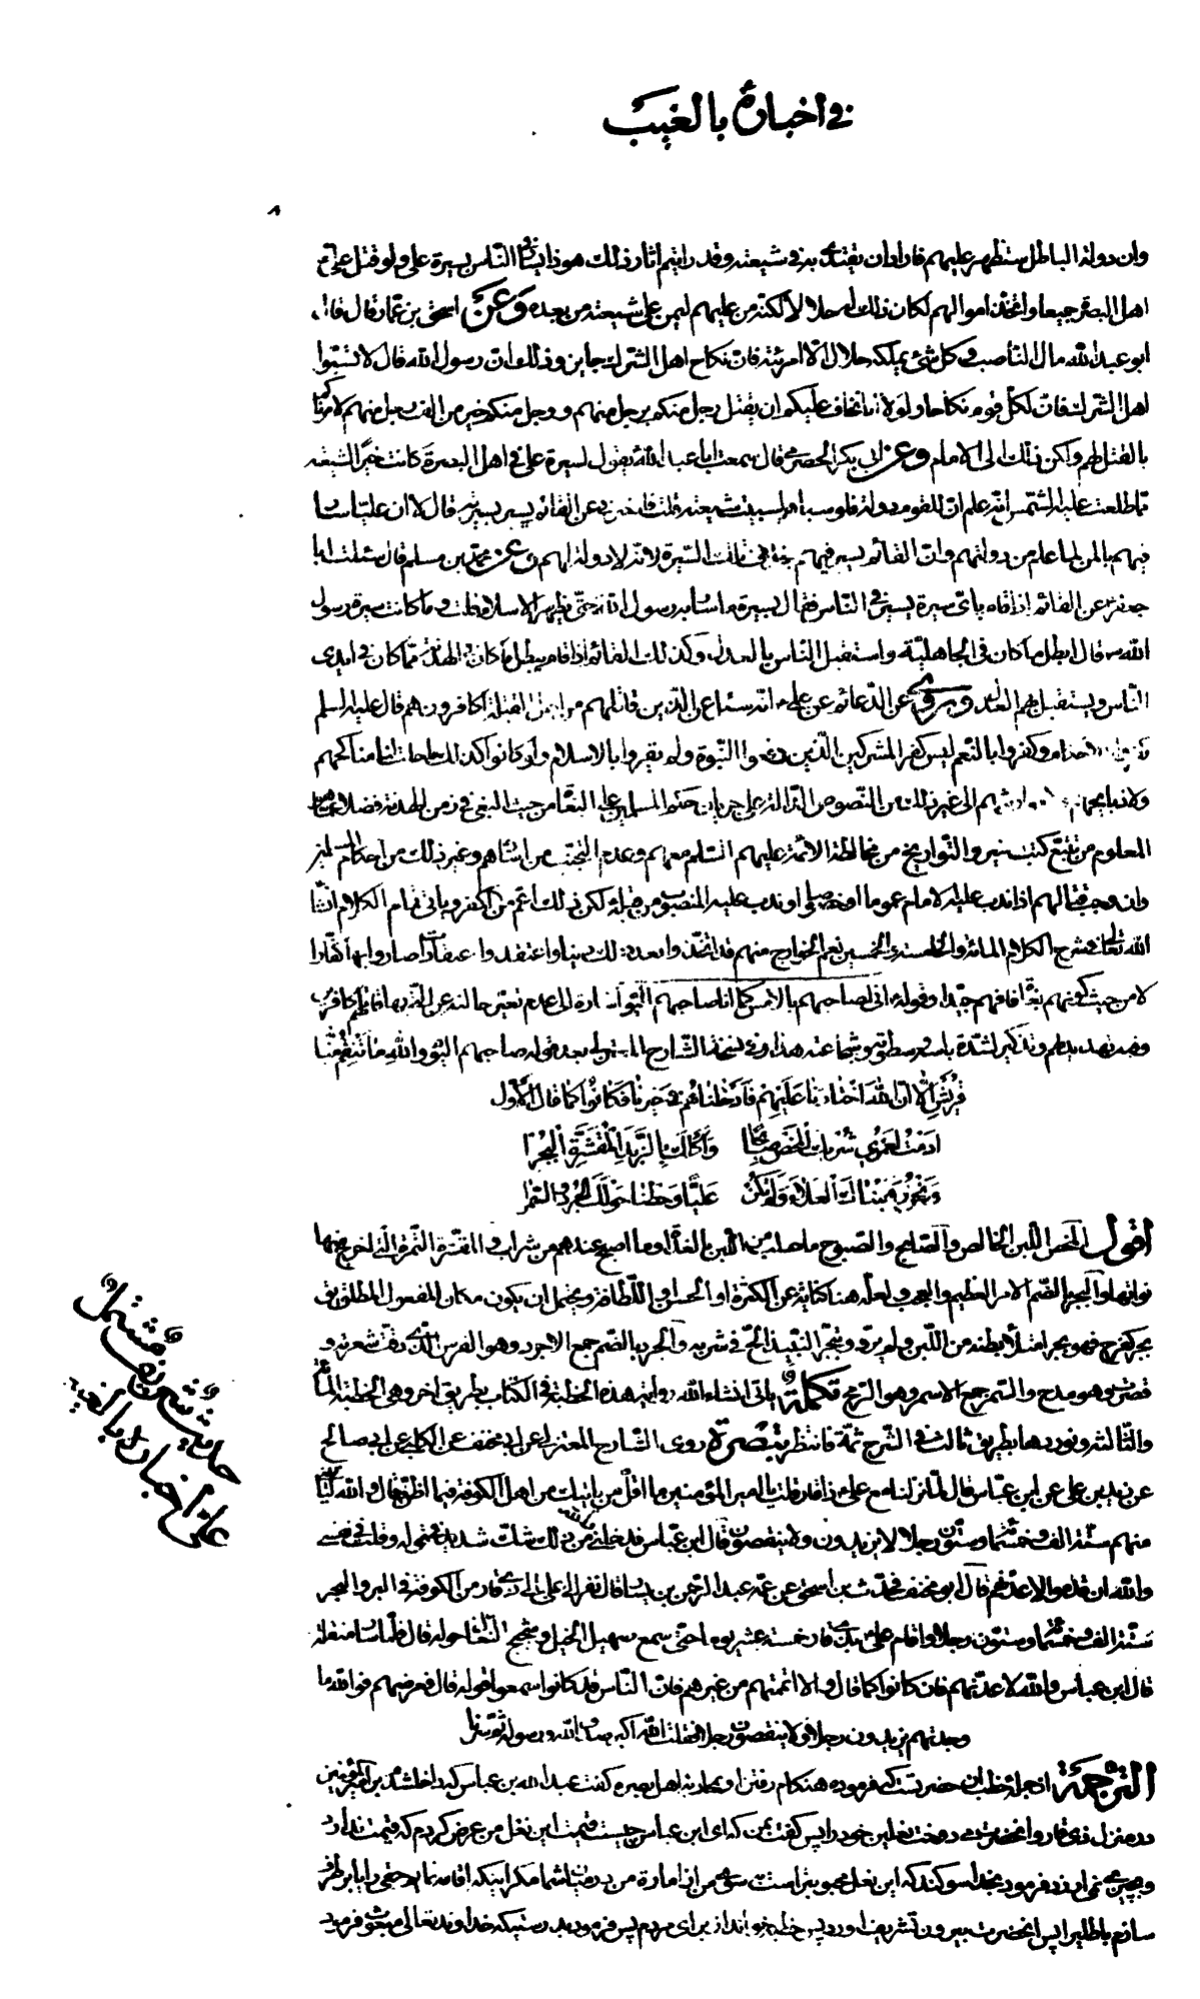 في اخباره بالغيب
٨
وان دولة الباطل ستظهر عليهم فاراد ان يقتدى به في شيعته وقد رايتم اثار ذلك هو ذا يسار في الناس بسيرة علي ولو قتل علي
اهل البصرة جميعا واتخذ اموالهم لكان ذلك له حلالا لكنه من عليهم ليمن على شيعته من بعده وعن اسحق بن عمار قال قال
ابو عبد الله مال الناصب وكل شئ يملكه حلال الا امرئته فان نكاح اهل الشرك جايز وذلك ان رسول الله قال لا تسبوا
اهل الشرك فان لكل قوم نكاحا ولولا انا نخاف عليكم ان يقتل رجل منكم برجل منهم ورجل منكم خير من الف رجل منهم لامرناكم
بالقتل لهم ولكن ذلك الى الامام وعن ابي بكر الحضرمي قال سمعت ابا عبد الله يقول لسيرة علي في اهل البصرة كانت خيرا لشيعته
مما طلعت عليه الشمس انه علم ان للقوم دولة فلو سباهم لسبيت شيعته قلت فاخبرني عن القائم يسير بسيرته قال لا ان عليا سار
فيهم بالمن لما علم من دولتهم وان القائم يسير فيهم بخلاف تلك السيرة لانه لا دولة لهم وعن محمد بن مسلم قال سئلت ابا
جعفر عن القائم اذا قام باى سيرة يسير في الناس فقال بسيرة ما سار به رسول الله حتى يظهر الاسلام قلت وما كانت سيرة رسول
الله قال ابطل ما كان في الجاهلية واستقبل الناس بالعدل وكذلك القائم اذا قام يبطل ما كان في الهدنة مما كان في ايدى
الناس ويستقبل بهم العدل وروى عن الدعائم عن علي انه سئل عن الذين قاتلهم من اهل القبلة اكافرون هم قال عليه السلم
كفروا بالاحكام وكفروا بالنعم ليس كفر المشركين الذين دفعوا النبوة ولم يقروا بالاسلام ولو كانوا كذلك ما حلت لنا مناكحهم
ولا ذبايحهم ولا مواريثهم الى غير ذلك من النصوص الدالة على جريان حكم المسلمين على البغاة من حيث البغي في زمن الهدنة فضلا عما هو
المعلوم من تتبع كتب السير والتواريخ من مخالطة الائمة عليهم السلم معهم وعدم التجنب من اسئارهم وغير ذلك من احكام المسلمين
وان وجب قتالهم اذا ندب عليه الامام عموما او خصوصا او ندب عليه المنصوب من قبله لكن ذلك اعم من الكفر وياتي تمام الكلام انشاء
الله تعالى في شرح الكلام المائة والخامسة والخمسين نعم الخوارج منهم قد اتخذوا بعد ذلك دينا واعتقدوا عقادات صاروا بها كفارا
لا من حيث كونهم بغاة فافهم جيدا وقوله اني لصاحبهم بالامس كما انا صاحبهم اليوم اشارة الى عدم تغير حالته عن التي بها قاتلهم كافرين
وفيه تهديد لهم وتذكير لشدة باسه وسطوته وشجاعته هذا وفي نسخة الشارح المعتزلي بعد قوله صاحبهم اليوم والله ما تنقم منا
قريش الا ان الله اختارنا عليهم فادخلناهم في حيزنا فكانوا كما قال الاول
ادمت لعمري شربك المحض صابحا واكلك بالزبد المقشرة البجرا
ونحن وهبناك العلاء ولم تكن عليا وحطنا حولك الجرد والسمرا
اقول المحض اللبن الخالص والصابح والصبوح ما حلب من اللبن بالغداة او ما اصبح عندهم من شراب والمقشرة الثمرة التي اخرج منها
نواتها والبجر بالضم الامر العظيم والعجب ولعله هنا كناية عن الكثرة او الحسن او اللطافة ويحتمل ان يكون مكان المفعول المطلق يق
بجر كفرح فهو بجر امتلأ بطنه من اللبن ولم يرو وتبجر النبيذ الح في شربه والجرد بالضم جمع الاجرد وهو الفرس الذى رقت شعرته و
قصرت وهو مدح والسمر جمع الاسمر وهو الرمح تكملة ياتي انشاء الله رواية هذه الخطبة في الكتاب بطريق اخر وهي الخطبة المأة
والثالثة ونوردها بطريق ثالث في الشرح ثمة فانتظر تبصرة روى الشارح المعتزلي عن ابي مخنف عن الكلبي عن ابي صالح
عن زيد بن علي عن ابن عباس قال لما نزلنا مع علي ذا قار قلت يا امير المؤمنين ما اقل من ياتيك من اهل الكوفة فيما اظن فقال والله لياتيني
منهم ستة الف وخمسمأة وستون رجلا لا يزيدون ولا ينقصون قال ابن عباس فدخلني والله من ذلك شك شديد في قوله وقلت في نفسي
والله ان قدموا لاعدنهم قال ابو مخنف فحدث ابن اسحق عن عمه عبد الرحمن بن يسار قال نفر الى علي الى ذى قار من الكوفة في البر والبحر
ستة الف وخمسمأة وستون رجلا واقام علي بذى قار خمسة عشر يوما حتى سمع صهيل الخيل وشحيج البغال حوله قال فلما سار منقلة
قال ابن عباس والله لاعدنهم فان كانوا كما قال والا اتممتهم من غيرهم فان الناس قد كانوا سمعوا قوله قال فعرضتهم فوالله ما
وجدتهم يزيدون رجلا ولا ينقصون رجلا فقلت الله اكبر صدق الله ورسوله ثم سرنا
الترجمة از جمله خطب ان حضرتست كه فرموده هنگام رفتن او بمحاربه اهل بصره گفت عبد الله بن عباس كه داخل شدم بر امير المؤمنين
در منزل ذي قار وانحضرت مي دوخت نعلين خود را پس گفت بمن كه اى ابن عباس چيست قيمت اين نعل من عرض كردم كه قيمت ندارد
وبچيزى نمى ارزد فرمود بخدا سوگند كه اين نعل محبوبتر است بسوى من از امارة من بر شما مگر اينكه اقامه نمايم حقى را يا برطرف
سازم باطلى را پس انحضرت بيرون تشريف اورد پس خطبه خواند از براى مردم پس فرمود بدرستيكه خداوند تعالى مبعوث فرمود
حديث شريف مشتمل
على اخباره بالغيب